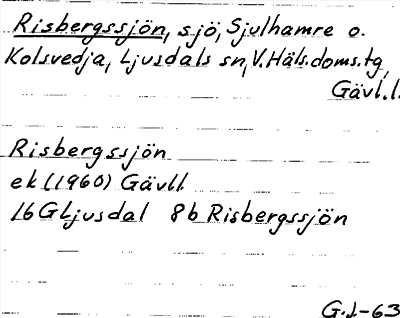 Risbergssjön, sjö, Sjulhamre o.
Kolsvedja, Ljusdals sn, V. Häls. doms. tg,
Gävl. l.
Risbergssjön
ek (1960) Gävll
16G Ljusdal 8b Risbergssjön
G.J-63